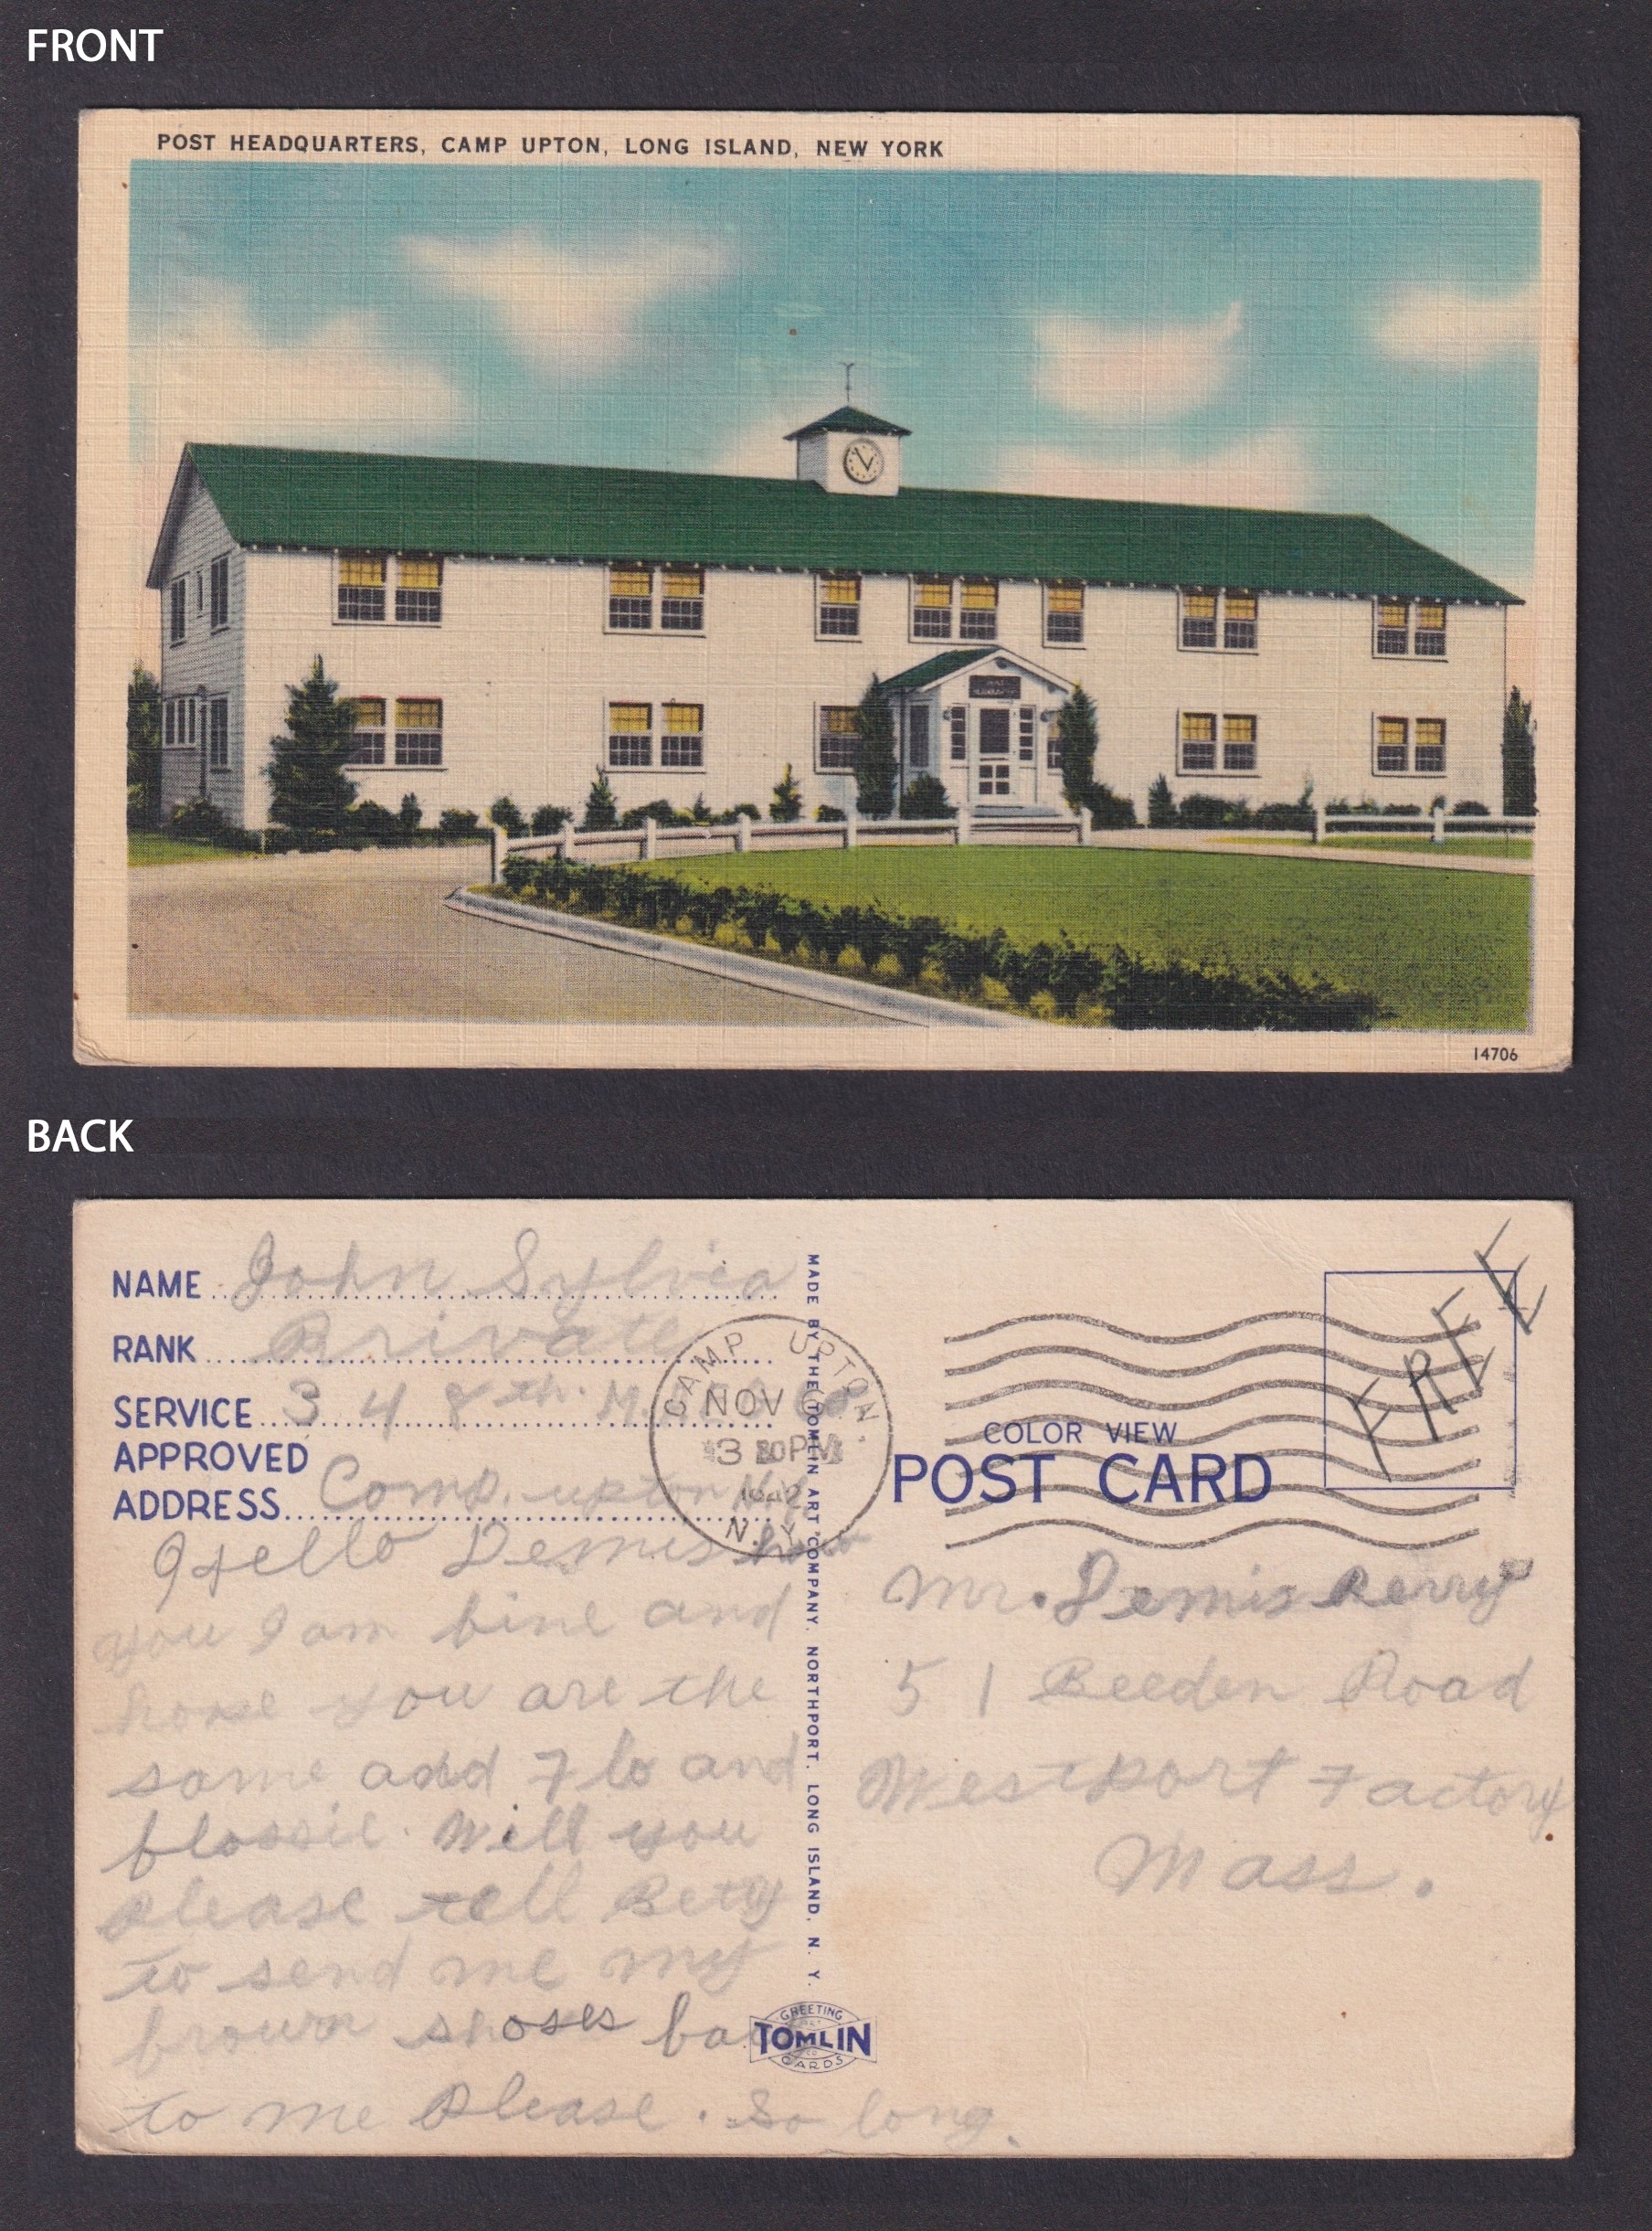 FRONT
POST HEADQUARTERS, CAMP UPTON, LONG ISLAND, NEW YORK
14706
BACK
NAME John Sylvia
RANK Private
SERVICE 348th.
APPROVED
ADDRESS Comp. upton N.Y.
Hello Demis how
you I am fine and
hope you are the
some and Flo and
flossie. Will you
please tell Bety
to send me my
brown shoses back
to me please. So long.
MADE BY THE TOMLIN ART COMPANY, NORTHPORT, LONG ISLAND, N. Y.
CAMP UPTON,
NOV
3 30PM
1942
N.Y.
FREE
COLOR VIEW
POST CARD
Mr. Demis Perry
51 Beeden Road
Westport Factory
Mass.
GREETING
TOMLIN
CARDS